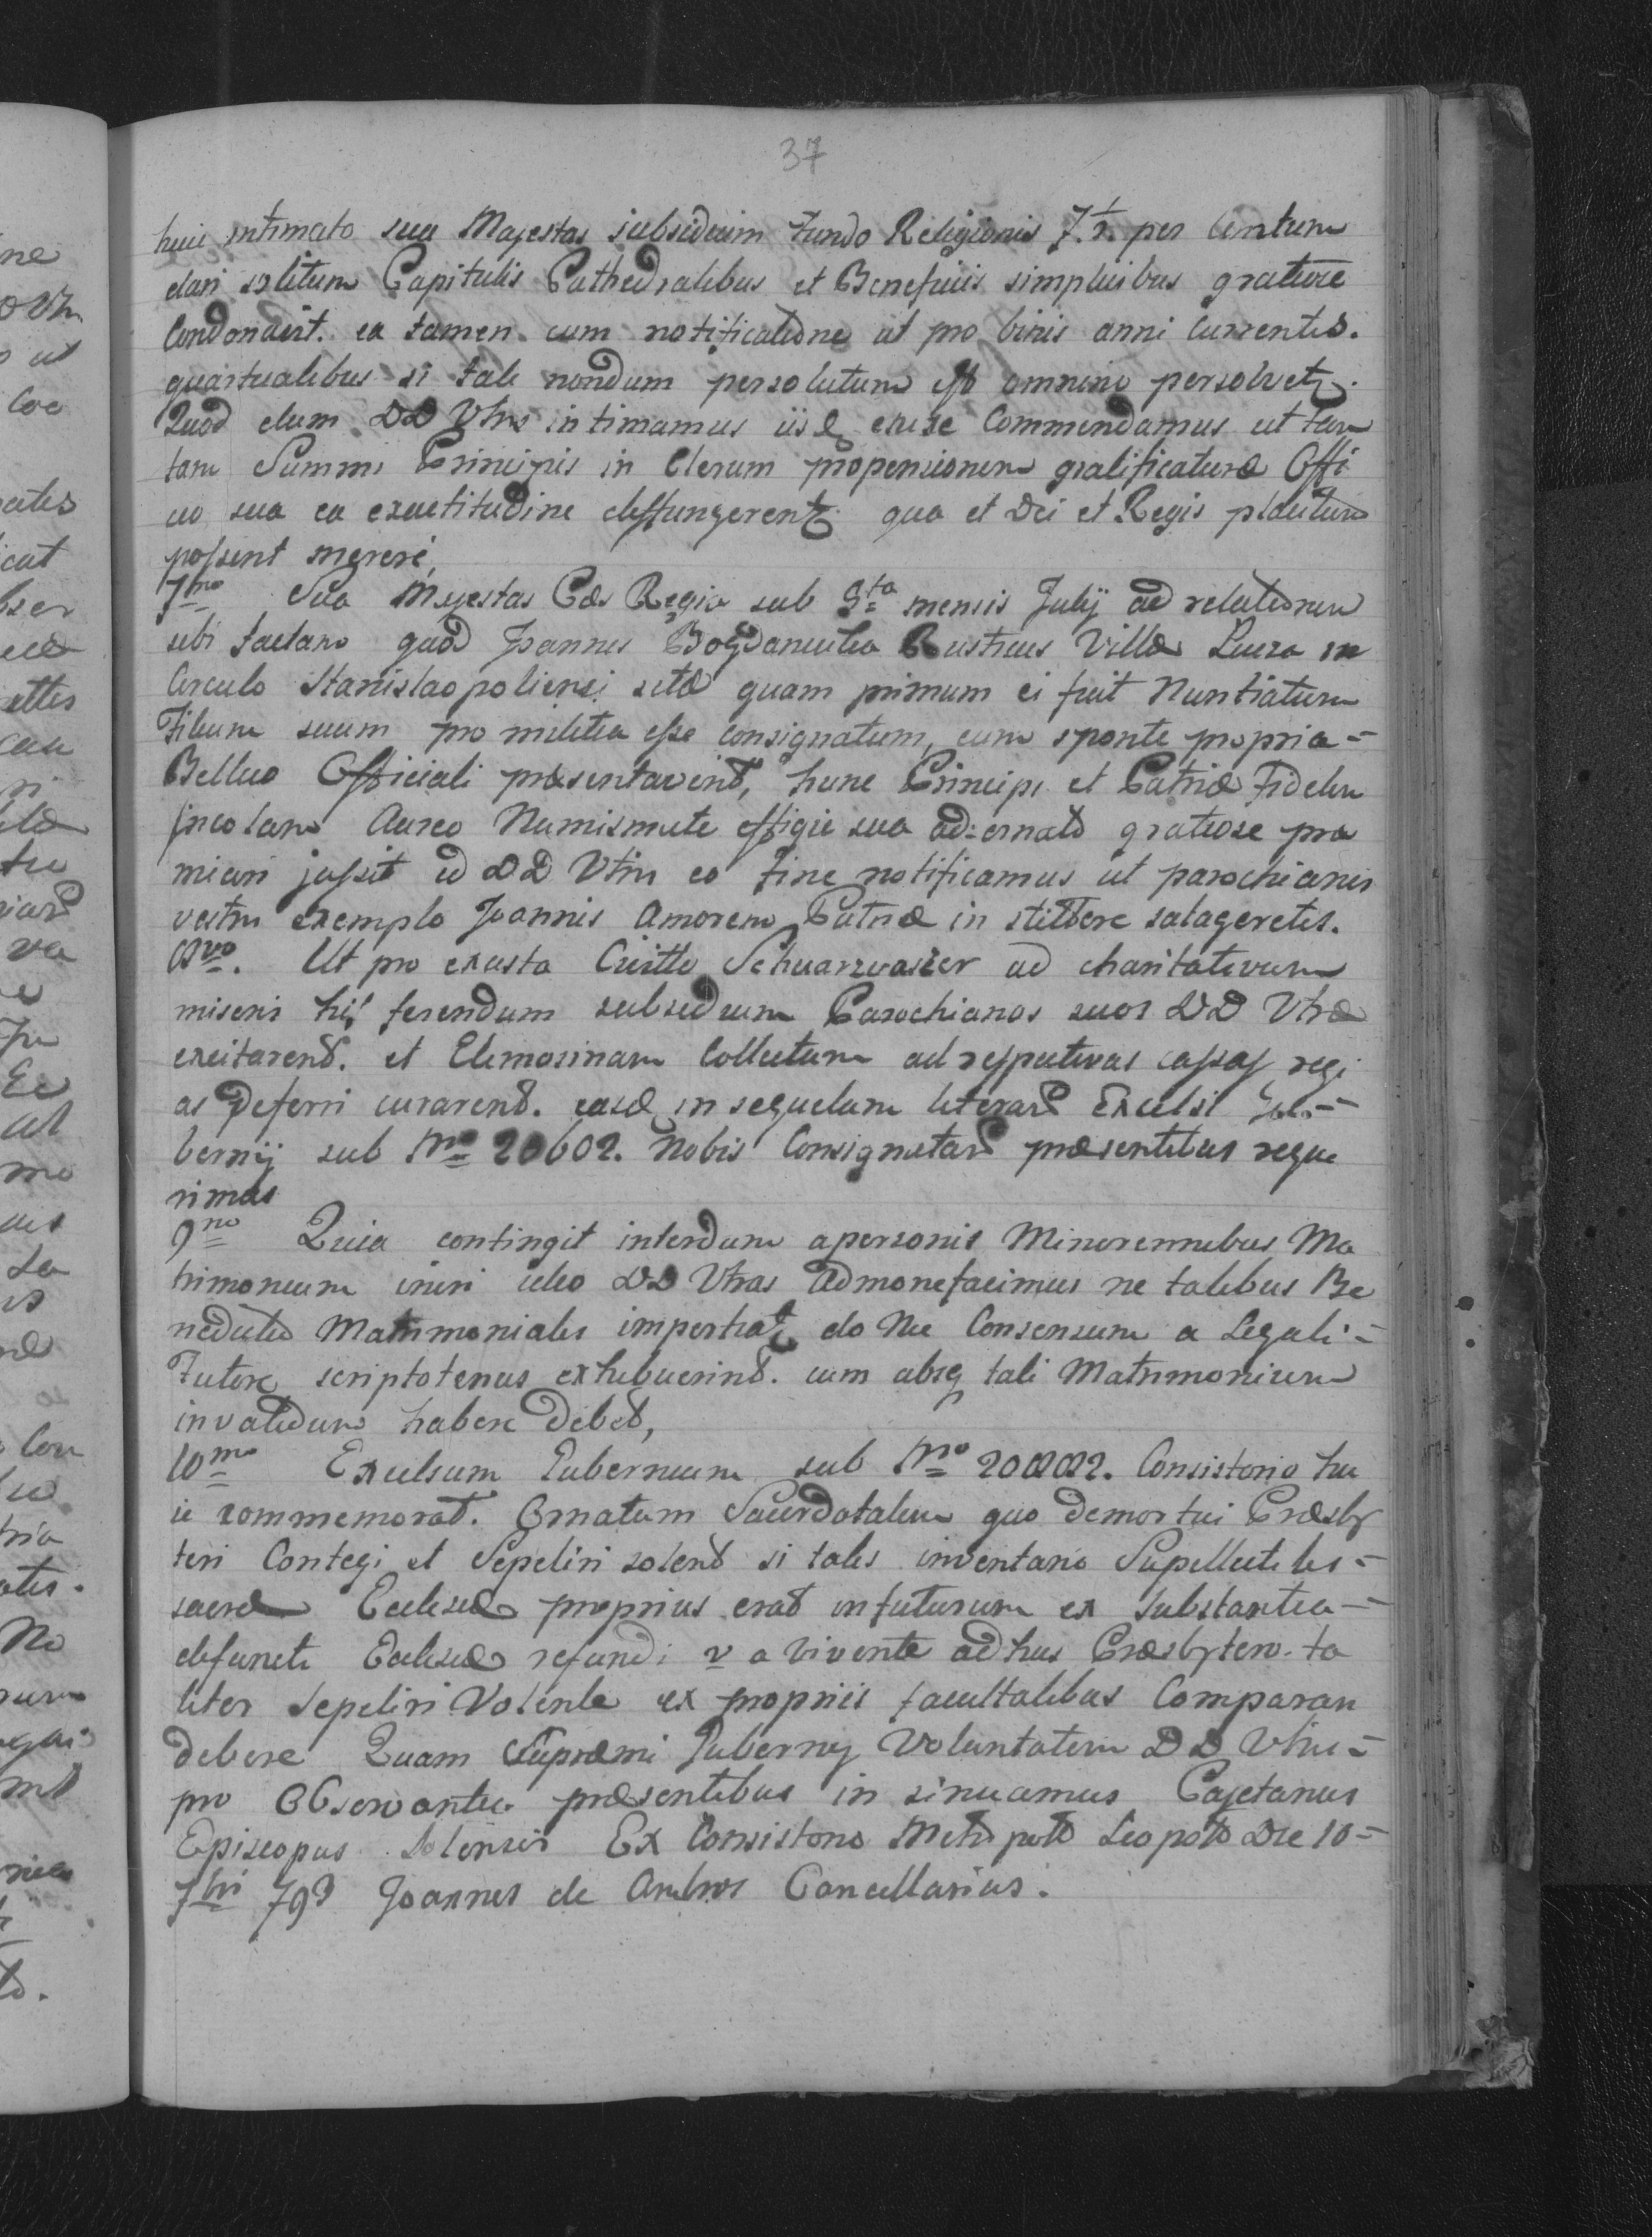 37
huic intimato sua Majestas subsidium Fundo Religionis 7. ½. per Centum
dari solitum Capitulis Cathedralibus et Beneficiis simplicibus gratiose
Condonavit. ea tamen cum notificatione ut pro binis anni Currentis.
quartualibus si tale nondum persolutum est omnino persolvet.
Quod dum DD Vtris intimamus iisq Commendamus ut tan
tam Summi Principis in Clerum propensionem gratificaturæ Offi
cio suo ea exactitudine deffungerent. qua et Dei et Regis placitum
possent mereri,
7mo Sua Majestas Cæs Regia sub 9ta mensis Julÿ ad relationem
sibi factam quod Joannes Bogdaniuka Rusticus Villæ Lucza in
Circulo Stanislaopoliensi sitæ quam primum ei fuit Nuntiatum
Filium suum pro militia esse consignatum, eum sponte propria=
Bellico Officiali præsentaverit, hunc Principi et Patriæ Fidelem
Incolam Aureo Numismate effigie sua adornato gratiose præ
miari jussit id DD Vtris eo fine notificamus ut parochianis
vestris exemplo Joannis Amorem Patriæ in stillare satageretis.
8vo. Ut pro exusta Civitte Schwarzwaszer ad charitativum
miseris his ferendum subsidium Parochianos suos DD Vtræ
excitarent. et Elemosinam Collectam ad respectivas cassas regi
as deferri curarent. easd in sequelam literar Excelsi Gu=
bernÿ sub Nro 20602. Nobis Consignatar præsentibus requi
rimus
9no Quia contingit interdum a personis Minorennibus Ma
trimonium iniri ideo DD Vtras admonefacimus ne talibus Be
nedictio Matrimonialis impertiat do Nec Consensum a Legali=
Tutore scriptotenus exhibuerint. cum absq tali Matrimonium
invalidum habere debet,
10mo Excelsum Gubernium sub Nro 20882. Consistorio hu
ic commemorat. Ornatum Sacerdotalem quo demortui Præsby
teri Contegi et Sepeliri solent si talis inventario Supellectiles=
sacræ Ecclesiæ proprius erat in futurum ex substantia=
defuncti Ecclesiæ refundi v a vivente adhuc Præsbytero ta
liter sepeliri Volente ex propriis facultatibus Comparari
debere Quam Supræmi Gubernÿ Voluntatem DD Vtris=
pro Observantia præsentibus in sinuamus Cajetanus
Episcopus Ex Consistorio Metropolt Leopolt Die 10=
7bri 793 Joannes de Ambros Cancellarius.